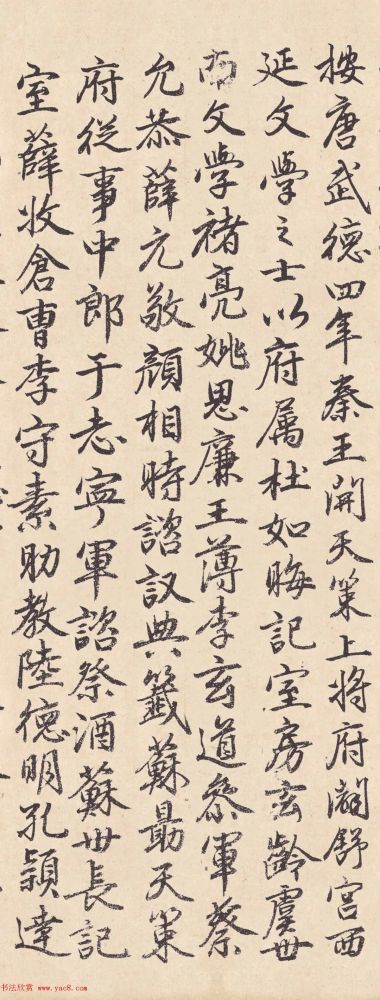 按唐武德四年秦王開天策上將府闢舒宮西
延文學之士以府属杜如晦記室房玄齡虞世
南文學褚亮姚思廉王薄李玄道叅軍蔡
允恭薛元敬顏相時諮议典籤蘇勗天策
府從事中郎于志寧軍諮祭酒蘇世長記
室薛收倉曹李守素助教陸德明孔頴達
书法欣赏 www.yac8.com